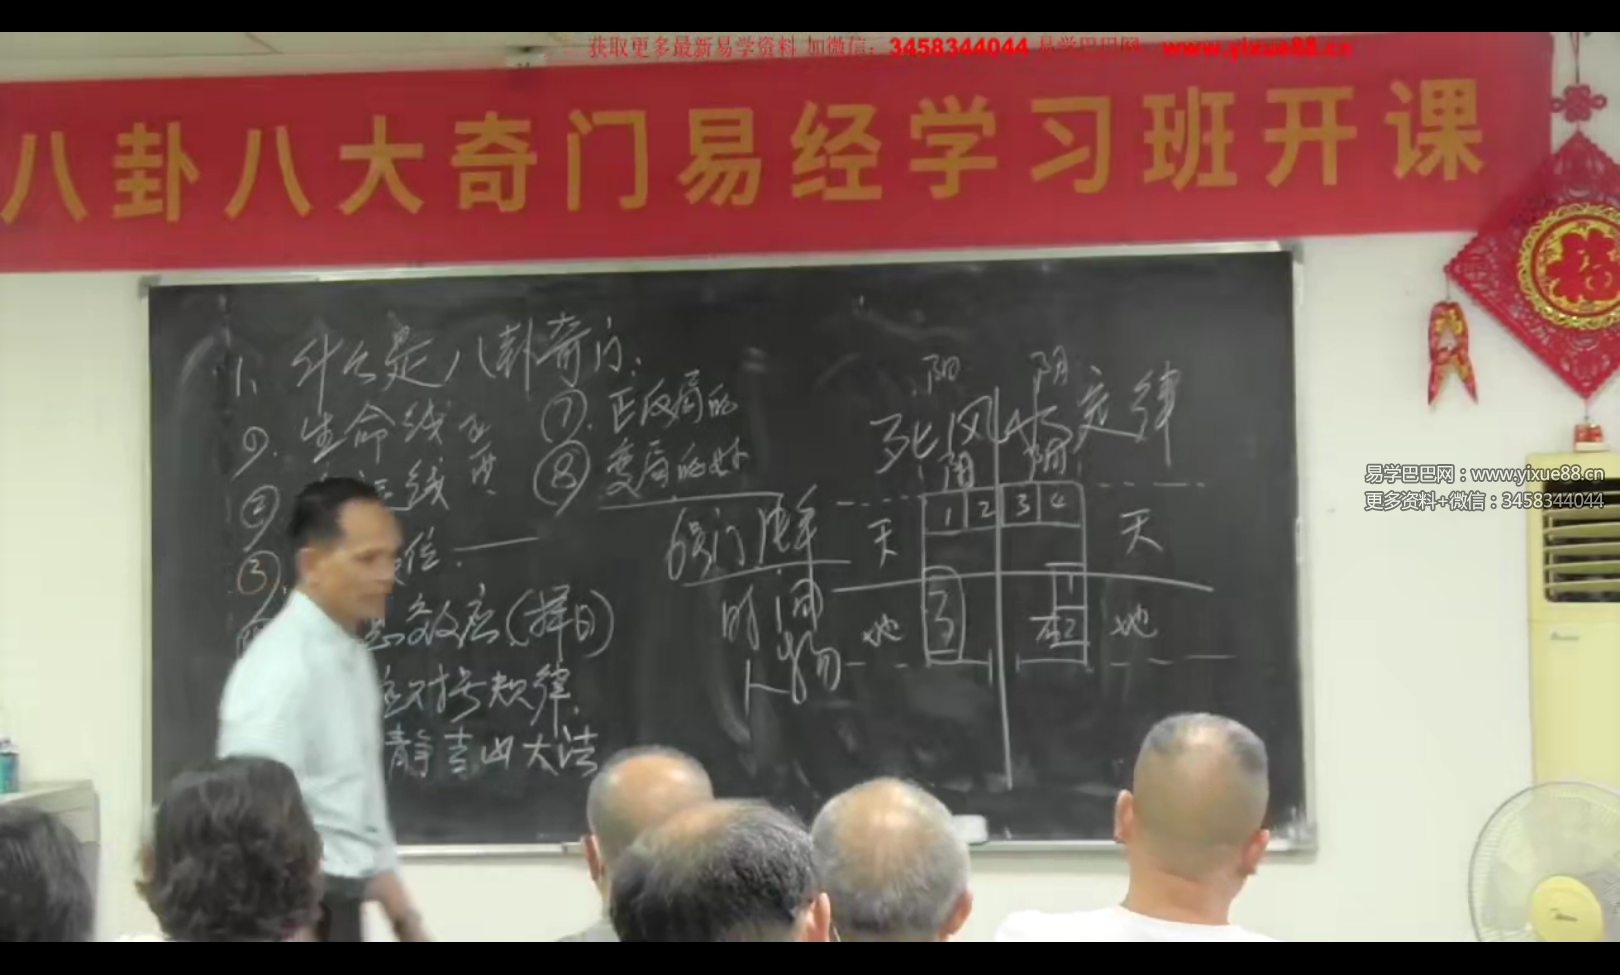 获取更多最新易学资料 加微信：3458344044 易学巴巴网 www.yixue88.cn
八卦八大奇门易经学习班开课
1、什么是八卦奇门：
生命线
线
⑦.正反局的
⑧变局的妙
位.
③.
效应(择日)
对号规律.
静吉凶大法
时间
人物
阳 阴
死 风 定律
阳 阴
天 1 2 3 4 天
地 1 地
易学巴巴网：www.yixue88.cn
更多资料+微信：3458344044